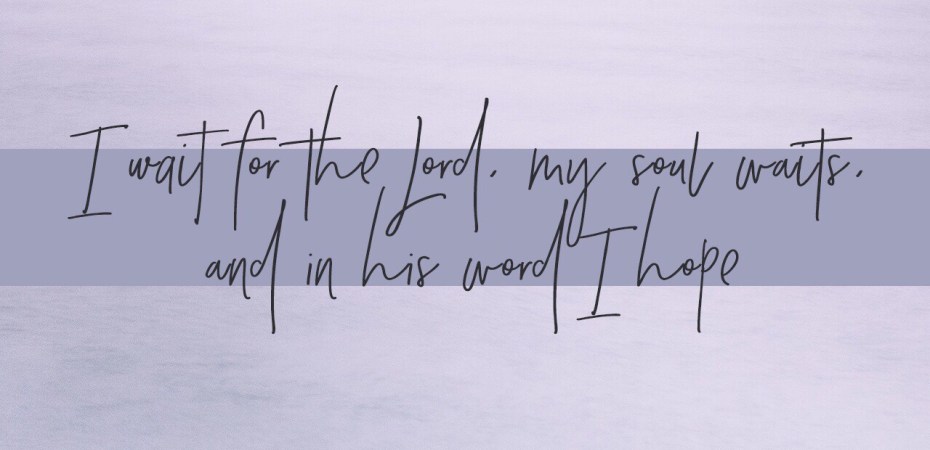 I wait for the Lord, my soul waits,
and in his word I hope